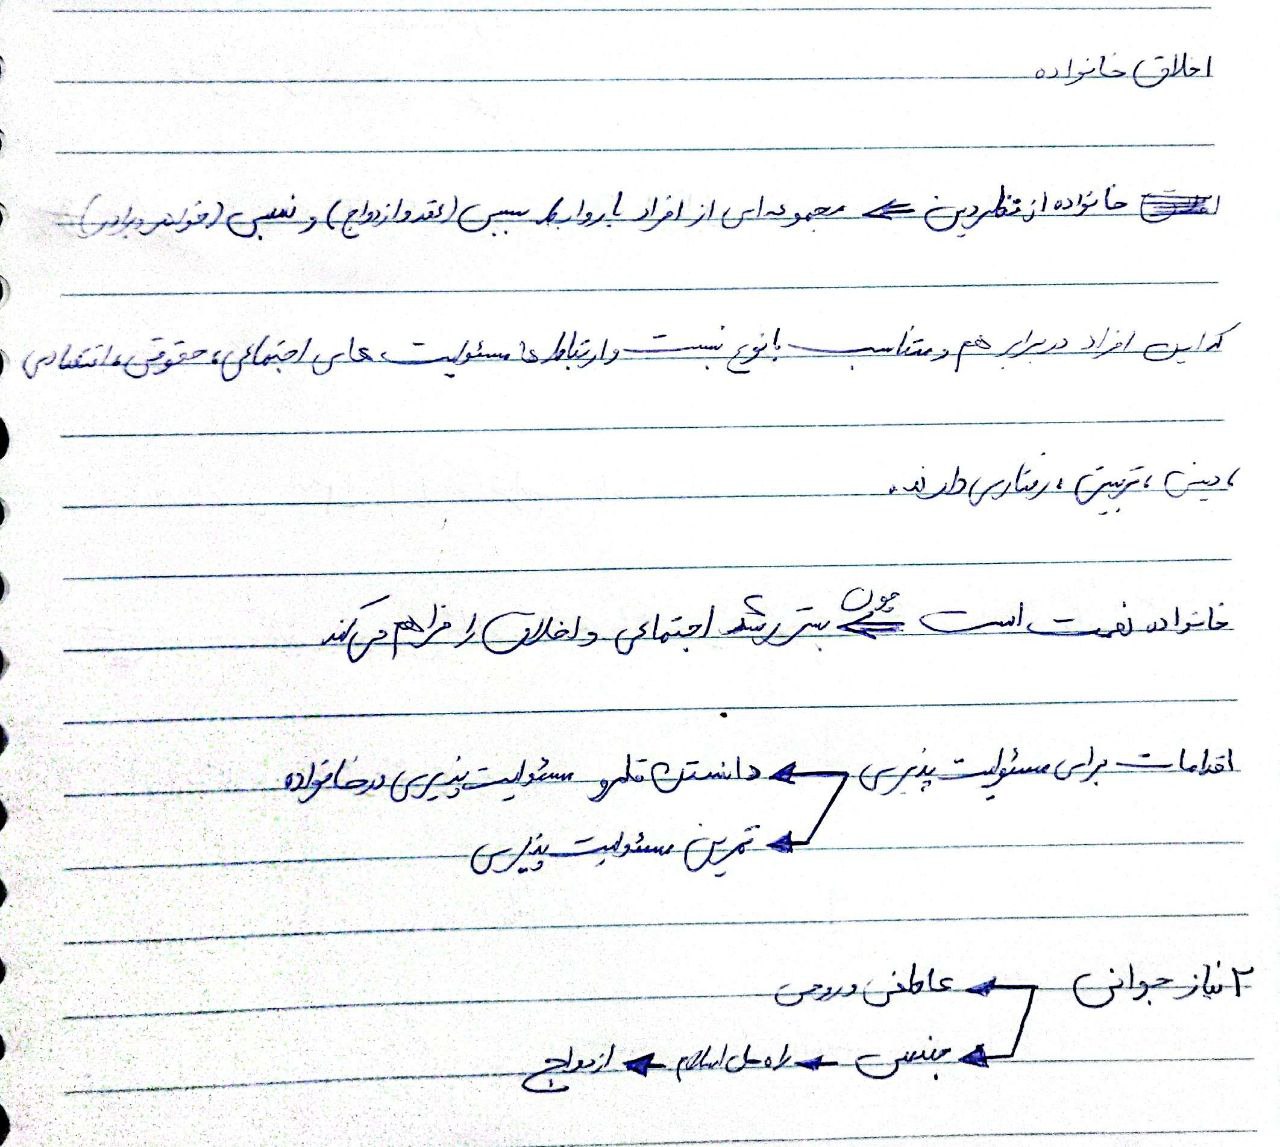 اخلاق خانواده
خانواده از نظر دین ← مجموعه ای از افراد با روابط سببی (عقد و ازدواج) و نسبی (خواهر و برادر)
که این افراد در برابر هم و متناسب با نوع نسبت و ارتباط ها مسئولیت های اجتماعی، حقوقی، اقتصادی
، دینی، تربیتی، رفتاری دارند.
خانواده نعمت است ← چون بستر رشد اجتماعی و اخلاق را فراهم می کند
اقدامات برای مسئولیت پذیری ← داشتن قلمرو مسئولیت پذیری در خانواده
← تمرین مسئولیت پذیری
۲ نیاز جوانی ← عاطفی و روحی
← جنسی ← راه حل اسلام ← ازدواج